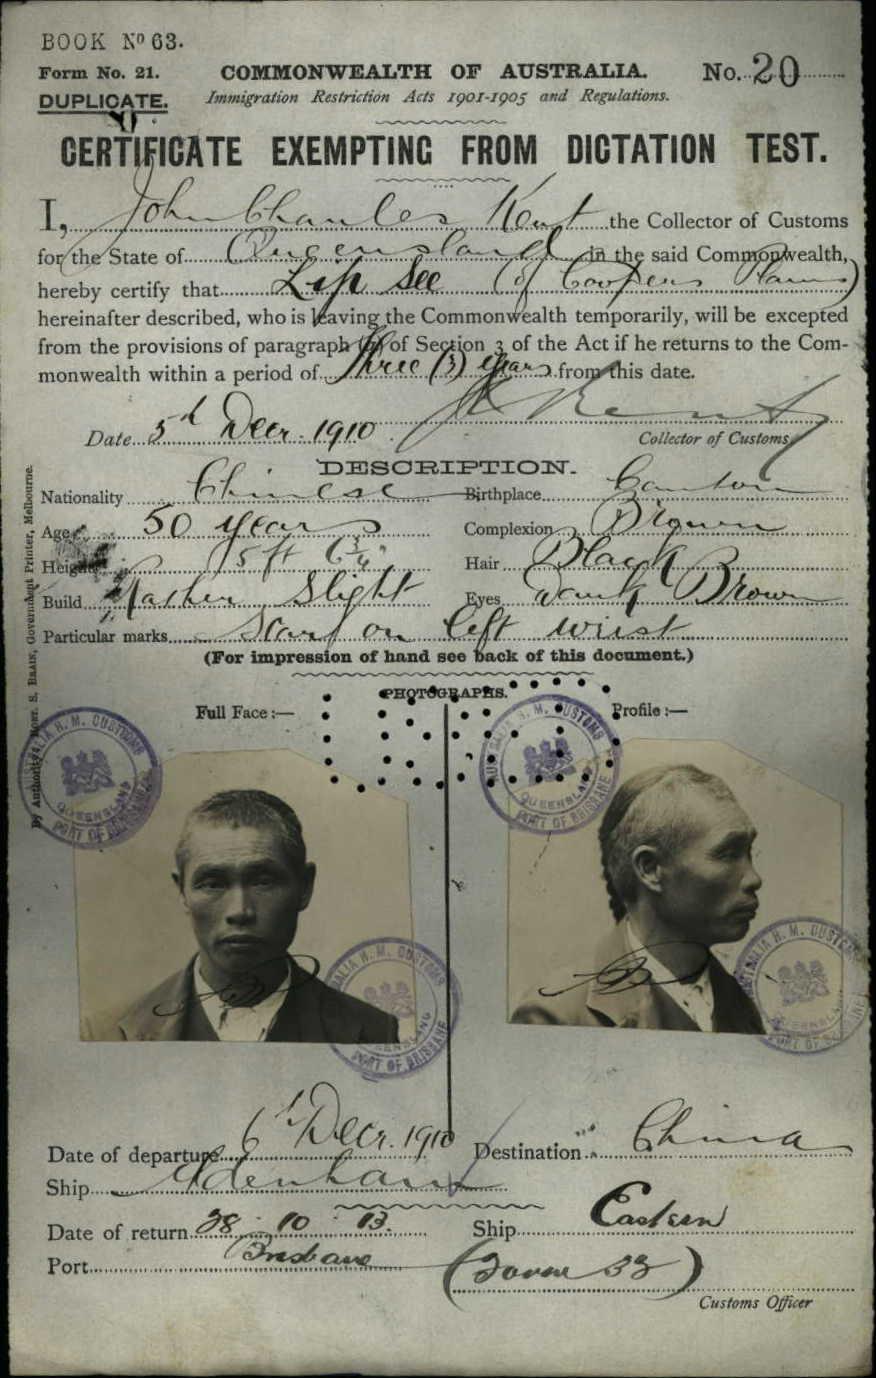 BOOK No 63.
Form No. 21. COMMONWEALTH OF AUSTRALIA. No. 20
DUPLICATE. Immigration Restriction Acts 1901-1905 and Regulations.
CERTIFICATE EXEMPTING FROM DICTATION TEST.
I, John Charles Kent the Collector of Customs
for the State of Queensland in the said Commonwealth,
hereby certify that Lip See (of Coopers Plains)
hereinafter described, who is leaving the Commonwealth temporarily, will be excepted
from the provisions of paragraph of Section 3 of the Act if he returns to the Com-
monwealth within a period of three (3) years from this date.
J C Kent
Date 5th Decr. 1910 Collector of Customs
DESCRIPTION.
Nationality Chinese Birthplace Canton
Age 50 years Complexion Brown
Height 5 ft 6 3/4" Hair Black
Build Rather Slight Eyes Dark Brown
Particular marks Scar on left wrist
(For impression of hand see back of this document.)
PHOTOGRAPHS.
Full Face :— Profile :—
AUSTRALIA H. M. CUSTOMS QUEENSLAND PORT OF BRISBANE
AUSTRALIA H. M. CUSTOMS QUEENSLAND PORT OF BRISBANE
AUSTRALIA H. M. CUSTOMS QUEENSLAND PORT OF BRISBANE
AUSTRALIA H. M. CUSTOMS QUEENSLAND PORT OF BRISBANE
Date of departure 6th Decr. 1910 Destination China
Ship Aldenham
Date of return 28 - 10 - 13. Ship Eastern
Port Brisbane (Form 32)
Customs Officer
By Authority: ROBT. S. BRAIN, Government Printer, Melbourne.